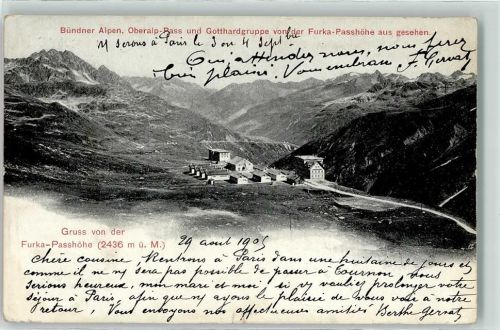 Bündner Alpen, Oberalp-Pass und Gotthardgruppe von der Furka-Passhöhe aus gesehen.
serons à Paris le 3 ou 4 Septbre
nous attendez nous, nous ferez
plaisir. Vous embrassons F. Gervat
Gruss von der
Furka-Passhöhe (2436 m ü. M.)
29 août 1905
Chère cousine, Rentrons à Paris dans une huitaine de jours et
comme il ne ns sera pas possible de passer à Tournon, nous
serions heureux, mon mari et moi, si vs vouliez prolonger votre
séjour à Paris, afin que ns ayons le plaisir de vous voir à notre
retour, Vous envoyons nos affectueuses amitiés Berthe Gervat